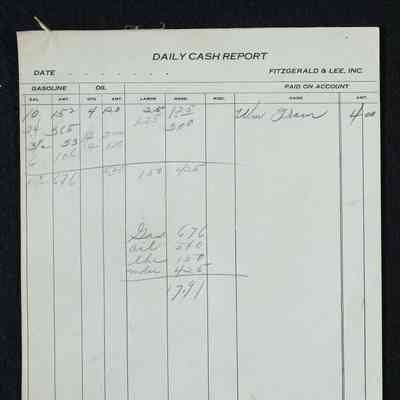 DAILY CASH REPORT
DATE . . . . . . . FITZGERALD & LEE, INC.
GASOLINE OIL PAID ON ACCOUNT
GAL. AMT. QTS. AMT. LABOR MDSE. MISC. NAME AMT.
10 152 4 120 25 125 Wm 4 00
24 365 125 300
3½ 53
106
676 150 425
Gas 676
oil 540
150
mdse 425
17.91